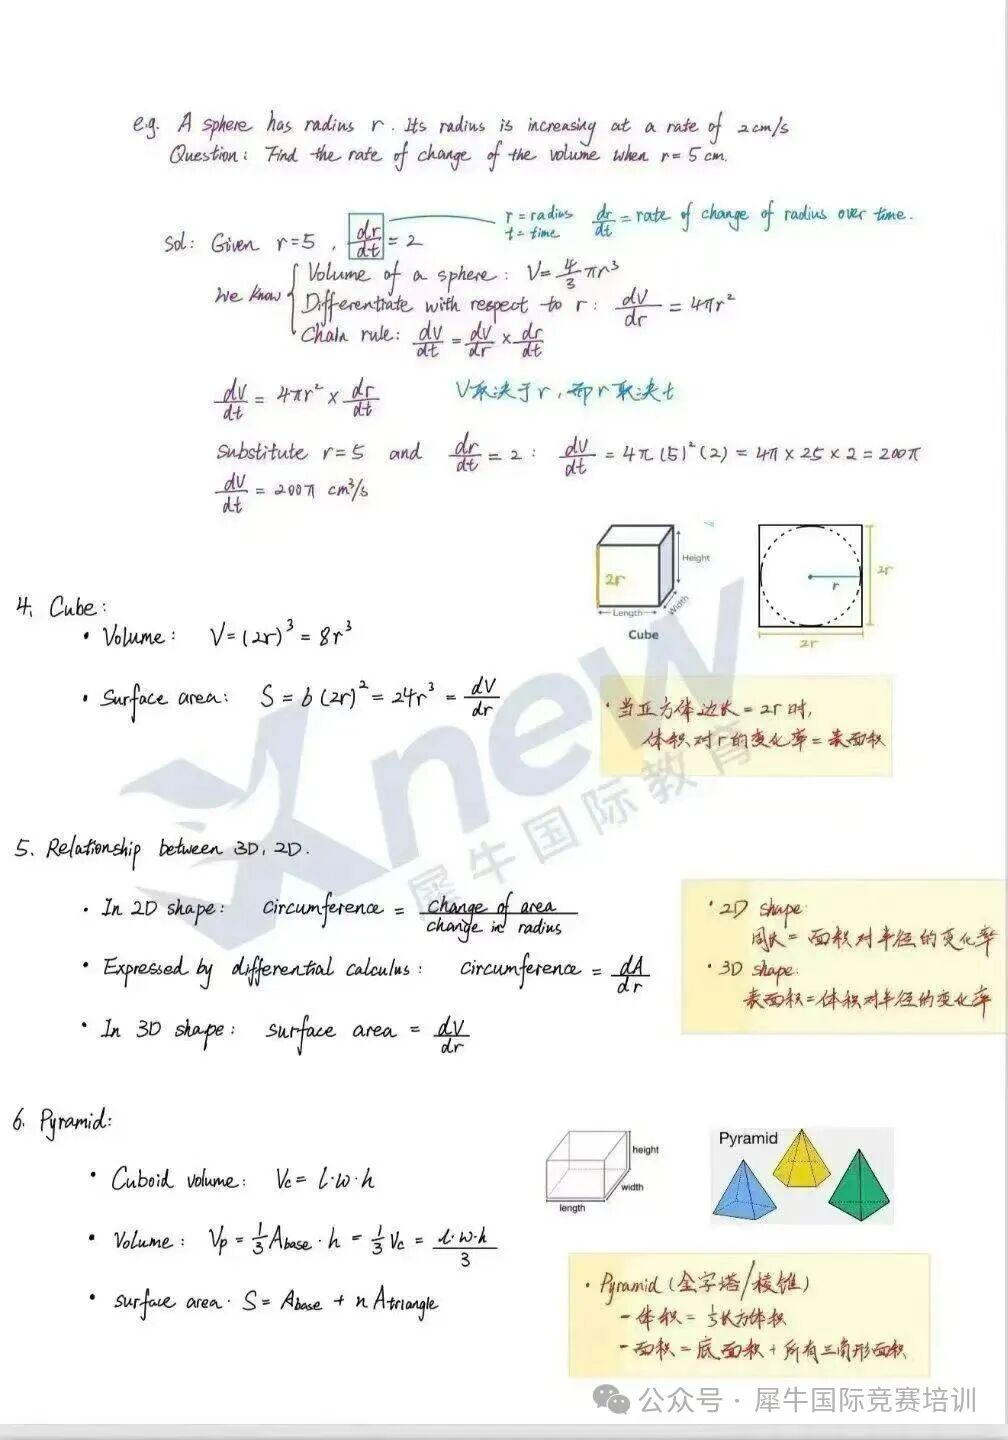 e.g. A sphere has radius r. Its radius is increasing at a rate of 2cm/s
Question: Find the rate of change of the volume when r=5cm.
r=radius dr/dt = rate of change of radius over time.
t=time
Sol: Given r=5, dr/dt = 2
We know
Volume of a sphere: V=4/3 πr³
Differentiate with respect to r: dV/dr = 4πr²
Chain rule: dV/dt = dV/dr × dr/dt
dV/dt = 4πr² × dr/dt
V取决于r,而r取决t
Substitute r=5 and dr/dt = 2: dV/dt = 4π(5)²(2) = 4π×25×2 = 200π
dV/dt = 200π cm³/s
2r
Height
Length
Width
Cube
r
2r
2r
4. Cube:
• Volume: V=(2r)³=8r³
• Surface area: S=6(2r)²=24r³=dV/dr
• 当正方体边长=2r时,
体积对r的变化率=表面积
new
犀牛国际教育
5. Relationship between 3D, 2D.
• In 2D shape: circumference = change of area/change in radius
• Expressed by differential calculus: circumference = dA/dr
• In 3D shape: surface area = dV/dr
• 2D shape:
周长=面积对半径的变化率
• 3D shape:
表面积=体积对半径的变化率
6. Pyramid:
• Cuboid volume: Vc=l·w·h
• Volume: Vp=1/3 Abase·h=1/3 Vc=l·w·h/3
• surface area. S=Abase+n Atriangle
height
width
length
Pyramid
• Pyramid(金字塔/棱锥)
-体积=1/3长方体积
-面积=底面积+所有三角形面积
公众号·犀牛国际竞赛培训